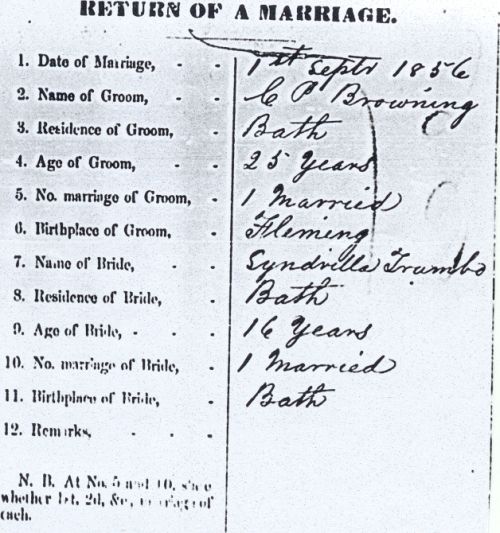 RETURN OF A MARRIAGE.
1. Date of Marriage, - - 1st Septr 1856
2. Name of Groom, - - C P Browning
3. Residence of Groom, - Bath
4. Age of Groom, - - 25 Years
5. No. marriage of Groom, - 1 Married
6. Birthplace of Groom, - Fleming
7. Name of Bride, - - Syndrilla Trumbo
8. Residence of Bride, - Bath
9. Age of Bride, - - - 16 Years
10. No. marriage of Bride, - 1 Married
11. Birthplace of Bride, - Bath
12. Remarks, - - -
N. B. At No. 5 and 10, state
whether 1st, 2d, &c., marriage of
each.